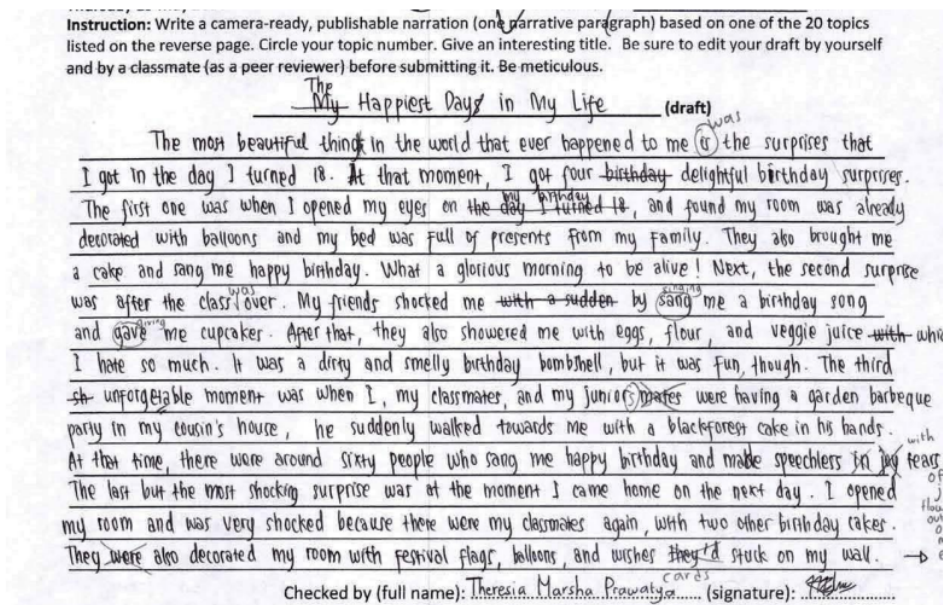 Instruction: Write a camera-ready, publishable narration (one narrative paragraph) based on one of the 20 topics
listed on the reverse page. Circle your topic number. Give an interesting title. Be sure to edit your draft by yourself
and by a classmate (as a peer reviewer) before submitting it. Be meticulous.
The
My Happiest Day in My Life (draft)
was
The most beautiful thing in the world that ever happened to me is the surprises that
I got in the day I turned 18. At that moment, I got four birthday delightful birthday surprises.
my birthday
The first one was when I opened my eyes on the day I turned 18, and found my room was already
decorated with balloons and my bed was full of presents from my family. They also brought me
a cake and sang me happy birthday. What a glorious morning to be alive! Next, the second surprise
was singing
was after the class over. My friends shocked me with a sudden by sang me a birthday song
giving
and gave me cupcakes. After that, they also showered me with eggs, flour, and veggie juice with
I hate so much. It was a dirty and smelly birthday bombshell, but it was fun, though. The third
sh unforgetable moment was when I, my classmates, and my juniors mates were having a garden barbeque
party in my cousin's house, he suddenly walked towards me with a blackforest cake in his hands.
with
At that time, there were around sixty people who sang me happy birthday and made speechlers in my tears
The last but the most shocking surprise was at the moment I came home on the next day. I opened
my room and was very shocked because there were my classmates again, with two other birthday cakes.
They were also decorated my room with festival flags, balloons, and wishes they'd stuck on my wall.
cards
Checked by (full name): Theresia Marsha Prawatya (signature):